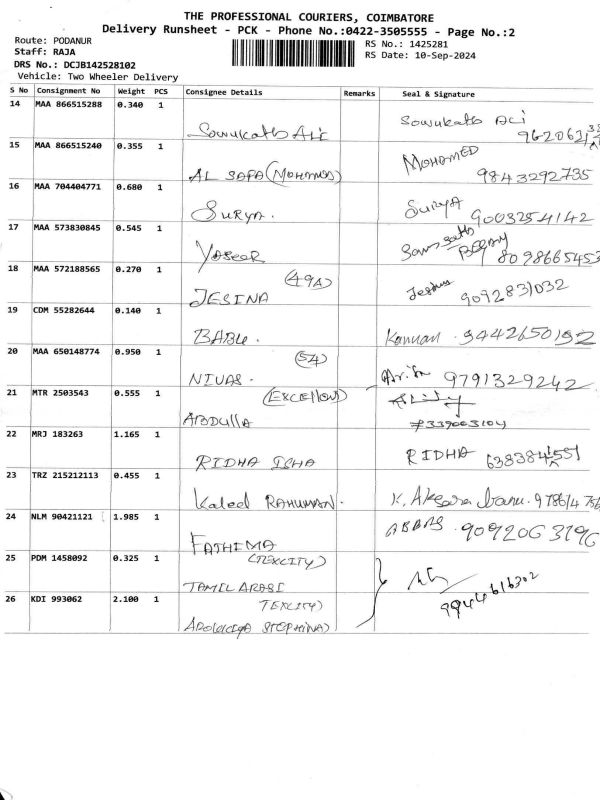 THE PROFESSIONAL COURIERS, COIMBATORE
Delivery Runsheet - PCK - Phone No.:0422-3505555 - Page No.:2
Route: PODANUR
Staff: RAJA
DRS No.: DCJB142528102
Vehicle: Two Wheeler Delivery
RS No.: 1425281
RS Date: 10-Sep-2024
S No Consignment No Weight PCS Consignee Details Remarks Seal & Signature
14 MAA 866515288 0.340 1 Sowukath Ali Sowukath Aci
15 MAA 866515240 0.355 1 AL SAFA (MOHAMED) MOHAMED 9843292735
16 MAA 704404771 0.680 1 SURYA. SURYA 9003254142
17 MAA 573830845 0.545 1 YASEER 8098665453
18 MAA 572188565 0.270 1 (49A) JESINA 9092831032
19 CDM 55282644 0.140 1 BABU. Kannan. 9442650192
20 MAA 650148774 0.950 1 (54) NIVAS. 9791329242
21 MTR 2503543 0.555 1 (EXCELLENT) ABDULLA 7339003104
22 MRJ 183263 1.165 1 RIDHA ISHA RIDHA
23 TRZ 215212113 0.455 1 Kaleel RAHUMAN. K. Aksara banu.
24 NLM 90421121 1.985 1 FATHIMA ABBAS. 909206 3196
25 PDM 1458092 0.325 1 (TEXCITY) TAMIL ARASI
26 KDI 993062 2.100 1 TEXCITY) 9944616302